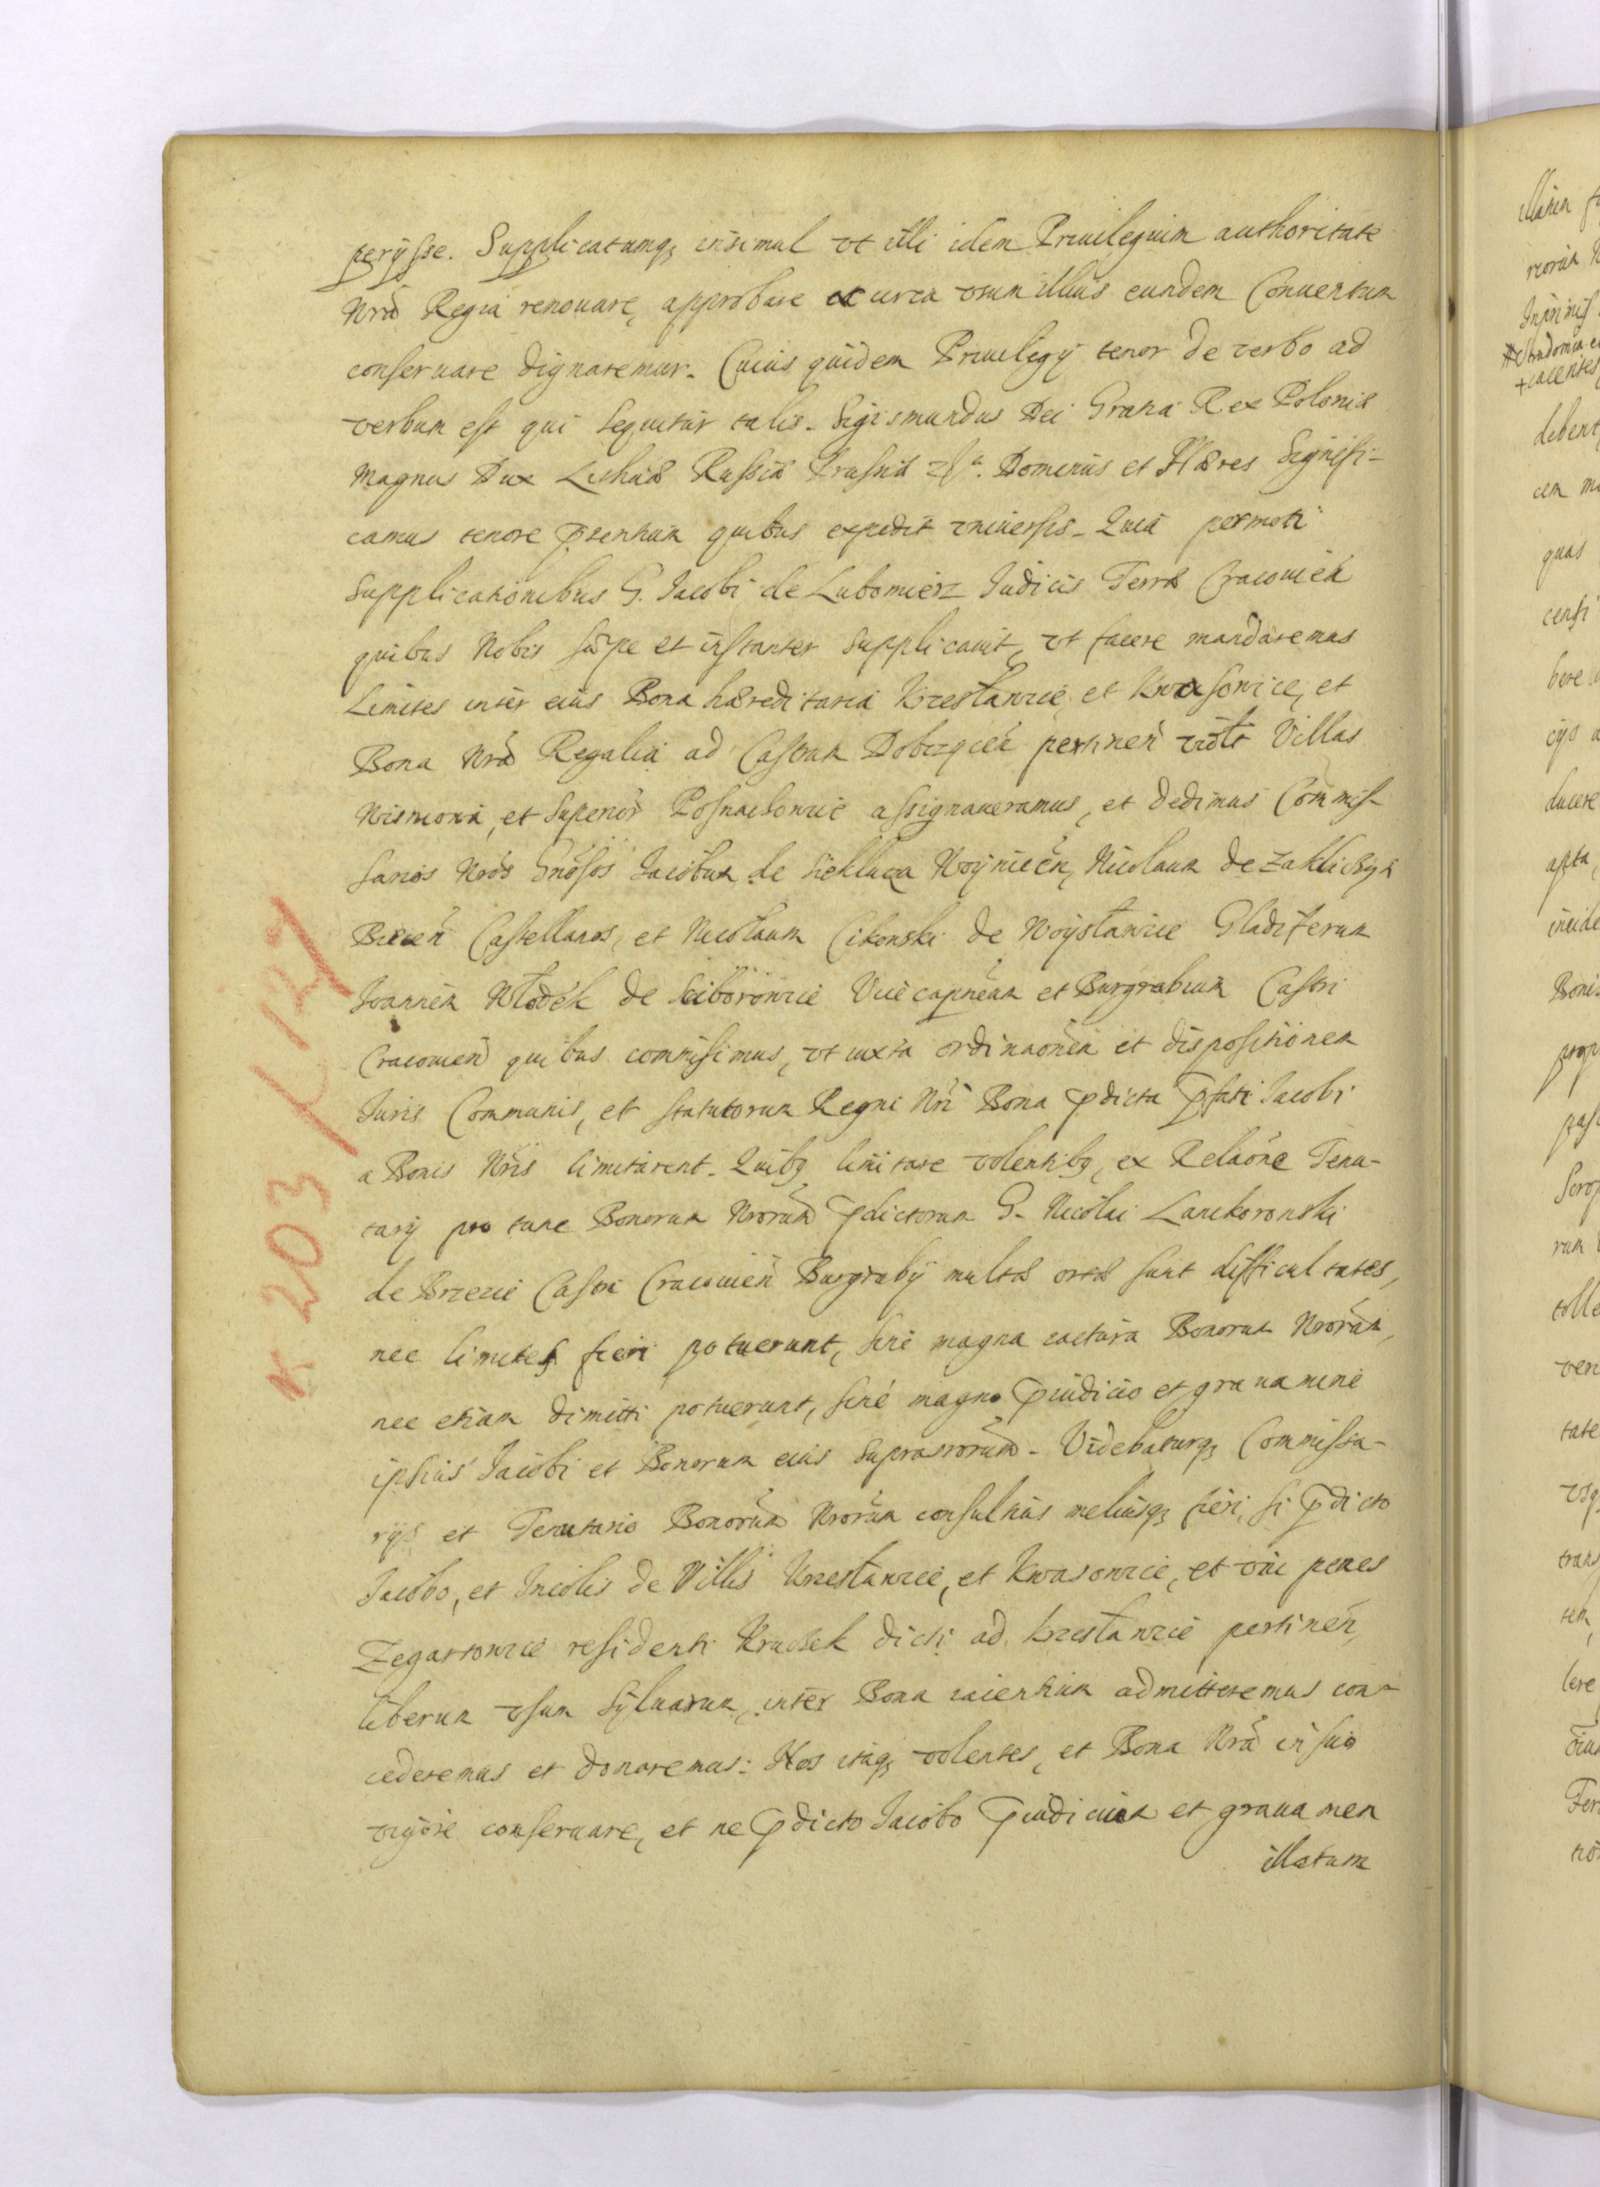 perijsse. Supplicatumq; insimul vt illi idem Priuilegium authoritate
Nrã Regia renouare, approbare et circa vsum illius eundem Conuentum
conseruare dignaremur. Cuius quidem Priuilegij tenor de verbo ad
verbum est qui sequitur talis. Sigismundus Dei Gratia Rex Poloniæ
Magnus Dux Lithuaniæ Russiæ Prussiæ Dominus et Hæres Signifi-
camus tenore p̃sentium quibus expedit vniuersis. Quia permoti
supplicationibus G. Jacobi de Lubomierz Judicis Terræ Cracouień
quibus Nobis sæpe et instanter supplicauit, vt facere mandaremus
Limites inter eius Bona hæreditaria Krzesławice et Kwasowice, et
Bona Nrã Regalia ad Castrum Dobczycień pertineń vidlt Villas
Wisniowa, et Superior Posnachowice assignaueramus, et dedimus Commis-
sarios Nros Gnosos Jacobum de Siekluca Woynicień, Nicolaum de Zakliczyn
Biecień Castellanos, et Nicolaum Cikowski de Woysławice Gladiferum
Joannem Włodek de Sciborowice Vicecapneum et Burgrabium Castri
Cracouień quibus commisimus, vt iuxta ordinaonem et dispositionem
Juris Communis, et statutorum Regni Nri Bona p̃dicta p̃fati Jacobi
a Bonis Nris limitarent. Quibq limitare volentibq, ex Relaone Tenu-
tarij pro tunc Bonorum Nrorum p̃dictorum G. Nicolai Lanckoronski
de Brzezie Castri Cracouień Burgrabij multæ ortæ sunt difficultates,
nec limites fieri potuerunt, sine magna iactura Bonorum Nrorum,
nec etiam dimitti potuerunt, sine magno p̃iudicio et grauamine
ipsius Jacobi et Bonorum eius suprascriptorum. Videbaturq; Commissa-
rijs et Tenutario Bonorum Nrorum consultius meliusq; fieri, si p̃dicto
Jacobo, et Incolis de Villis Krzesławice, et Kwasowice, et vni penes
Zegartowice residenti Kruczek dicti ad Krzesławice pertineń,
liberum vsum syluarum, inter Bona iacentium admitteremus con-
cederemus et donaremus: Nos itaq; volentes, et Bona Nrã in suo
vigore conseruare, et ne p̃dicto Jacobo p̃iudicium et grauamen
illatum
K 203 K 137